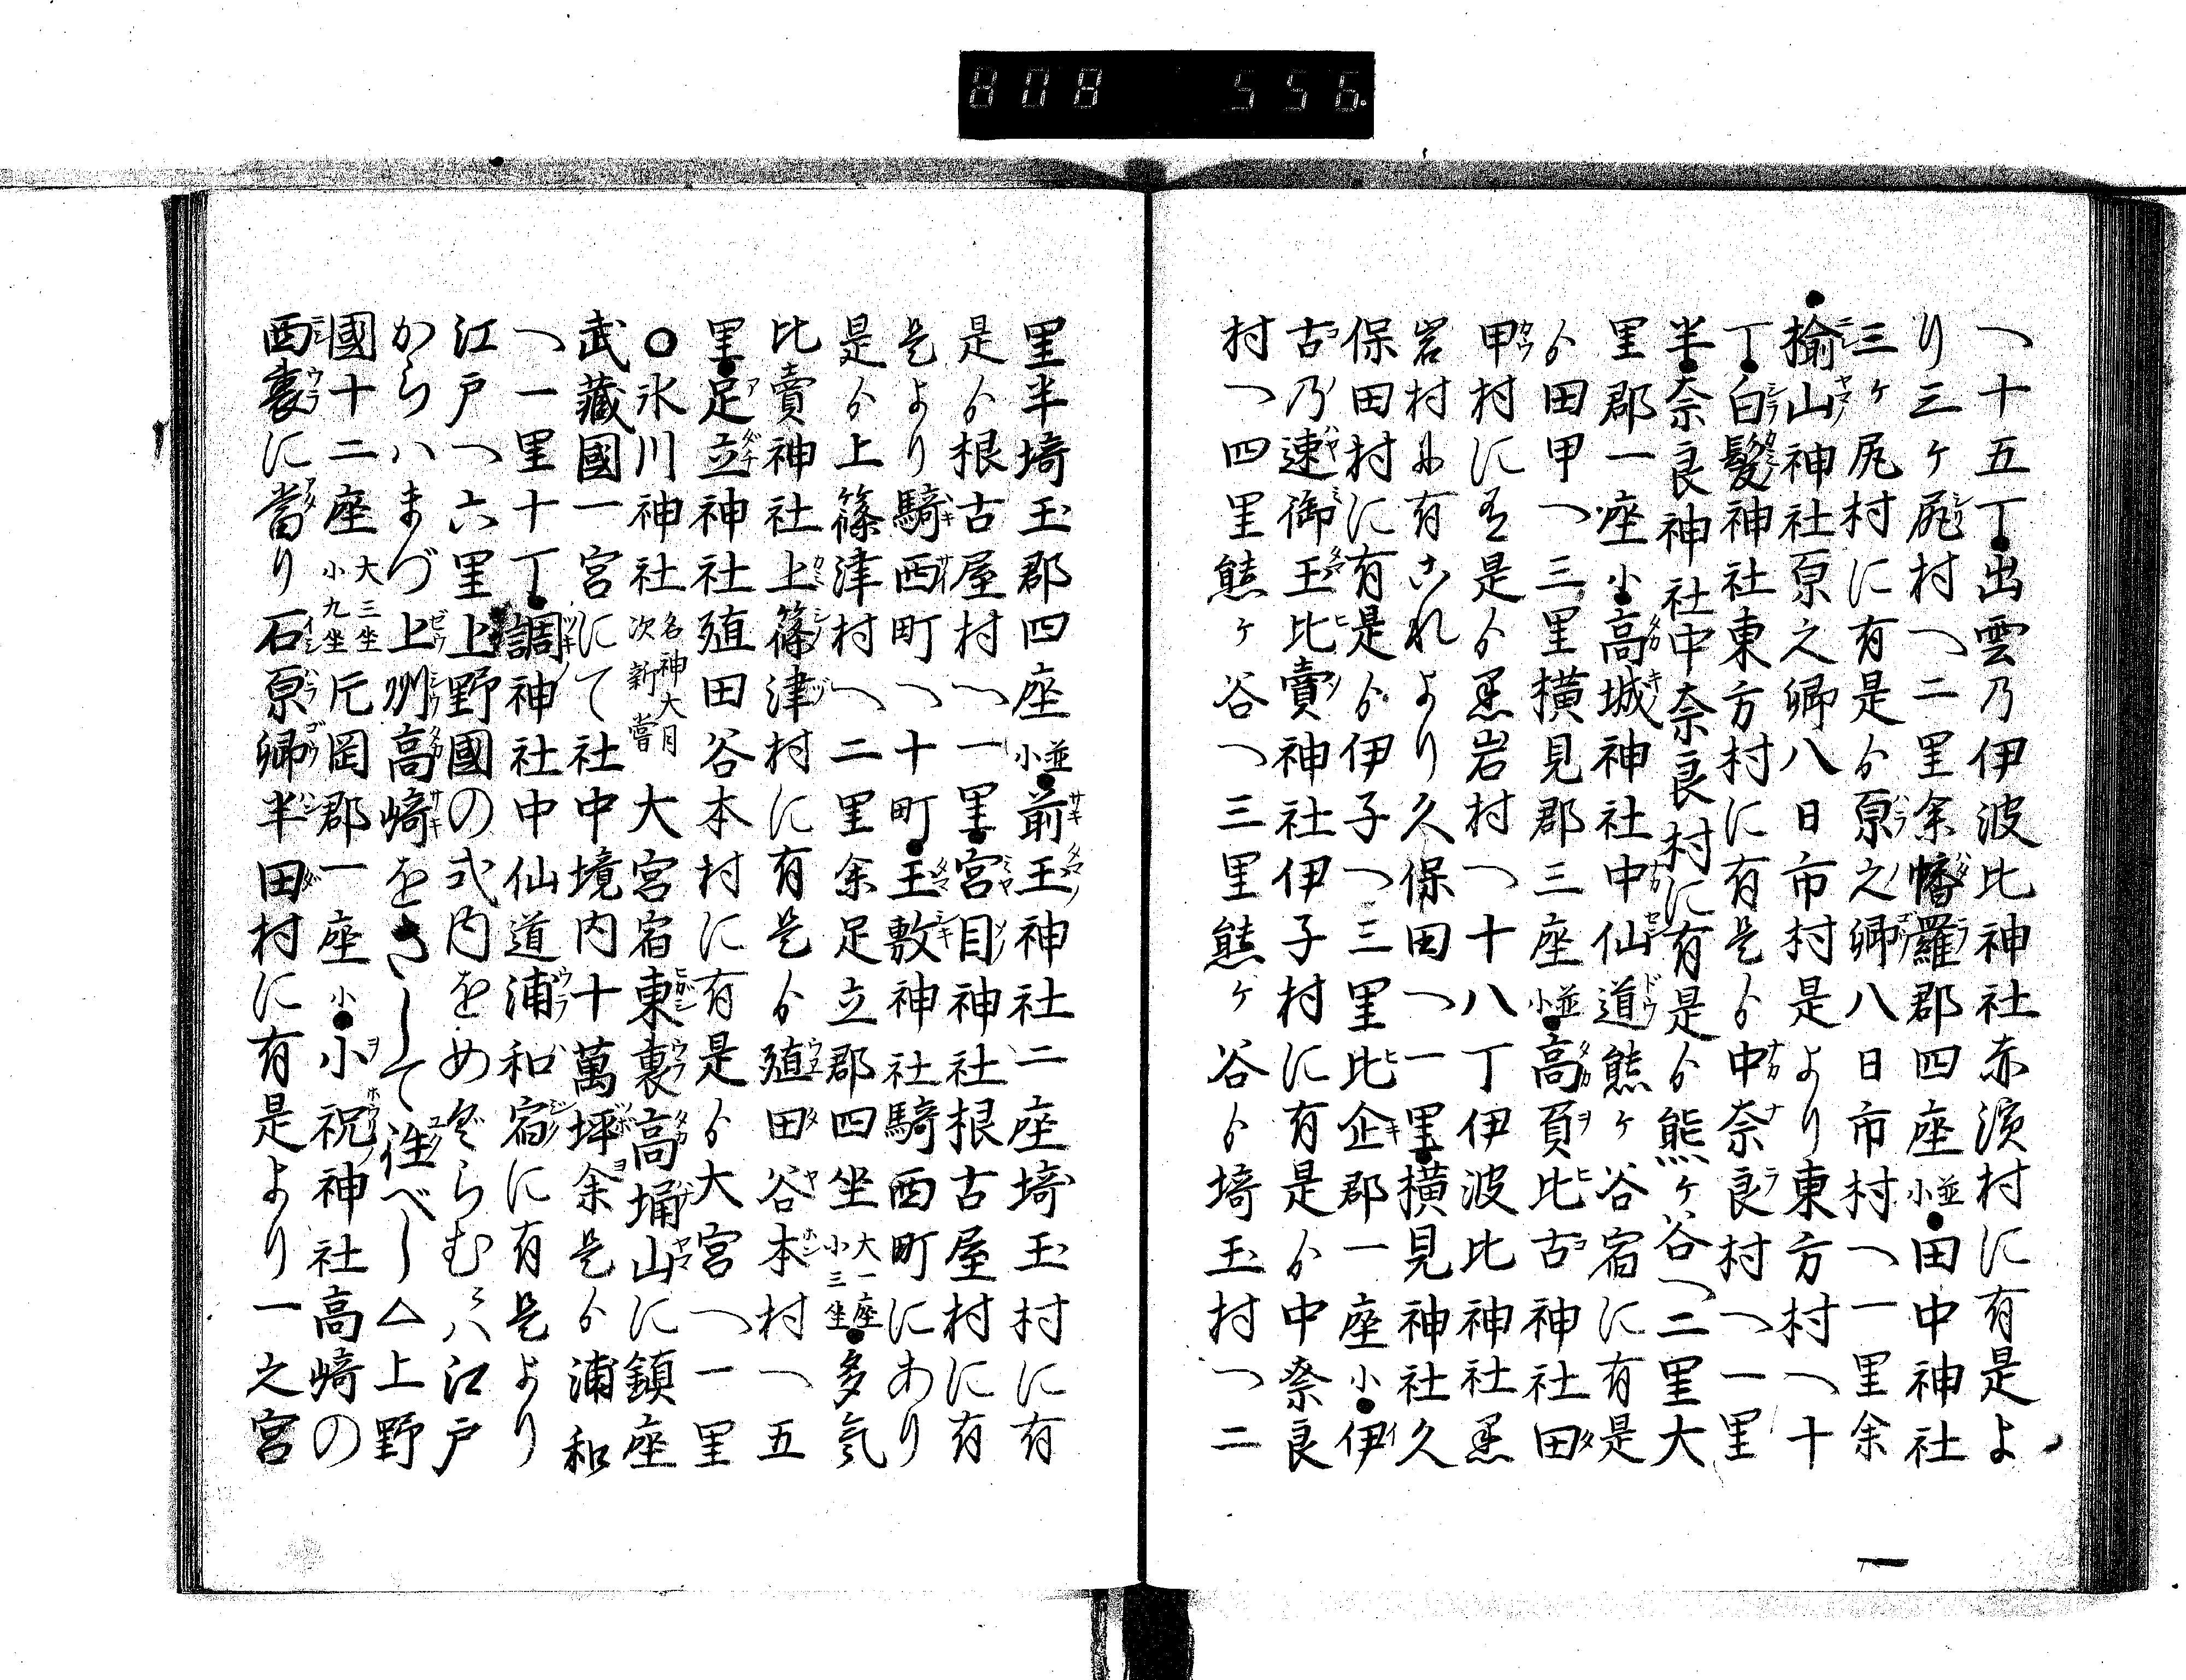 808 556.
へ十五丁●出雲乃伊波比神社赤濱村に有是よ
り三ヶ尻村へ二里余幡羅郡四座並小●田中神社
三ヶ尻村に有是ゟ原之郷八日市村へ一里余
●揄山神社原之郷八日市村是より東方村へ十
丁●白髪神社東方村に有是ゟ中奈良村へ一里
半●奈良神社中奈良村に有是ゟ熊ヶ谷へ二里大
里郡一座小●高城神社中仙道熊ヶ谷宿に有是
ゟ田甲へ三里横見郡三座並小●高負比古神社田
甲村に有是ゟ黒岩村へ十八丁伊波比神社黒
岩村に有これより久保田へ一里●横見神社久
保田村に有是ゟ伊子へ三里比企郡一座小●伊
古乃速御玉比賣神社伊子村に有是ゟ中奈良
村へ四里熊ヶ谷へ三里熊ヶ谷ゟ埼玉村へ二
里半埼玉郡四座並小●前玉神社二座埼玉村に有
是ゟ根古屋村へ一里●宮目神社根古屋村に有
是より騎西町へ十町●玉敷神社騎西町にあり
是ゟ上篠津村へ二里余足立郡四坐大一座小三坐●多気
比賣神社上篠津村に有是ゟ殖田谷本村へ五
里●足立神社殖田谷本村に有是ゟ大宮へ一里
○氷川神社名神大月次新嘗大宮宿東裏高埇山に鎮座
武藏國一宮にて社中境内十萬坪余是ゟ浦和
へ一里十丁●調神社中仙道浦和宿に有是より
江戸へ六里上野國の式内をめぐらむハ江戸
からハまづ上州高崎をさして往べし△上野
國十二座大三坐小九坐片岡郡一座小●小祝神社高崎の
西裏に當り石原郷半田村に有是より一之宮